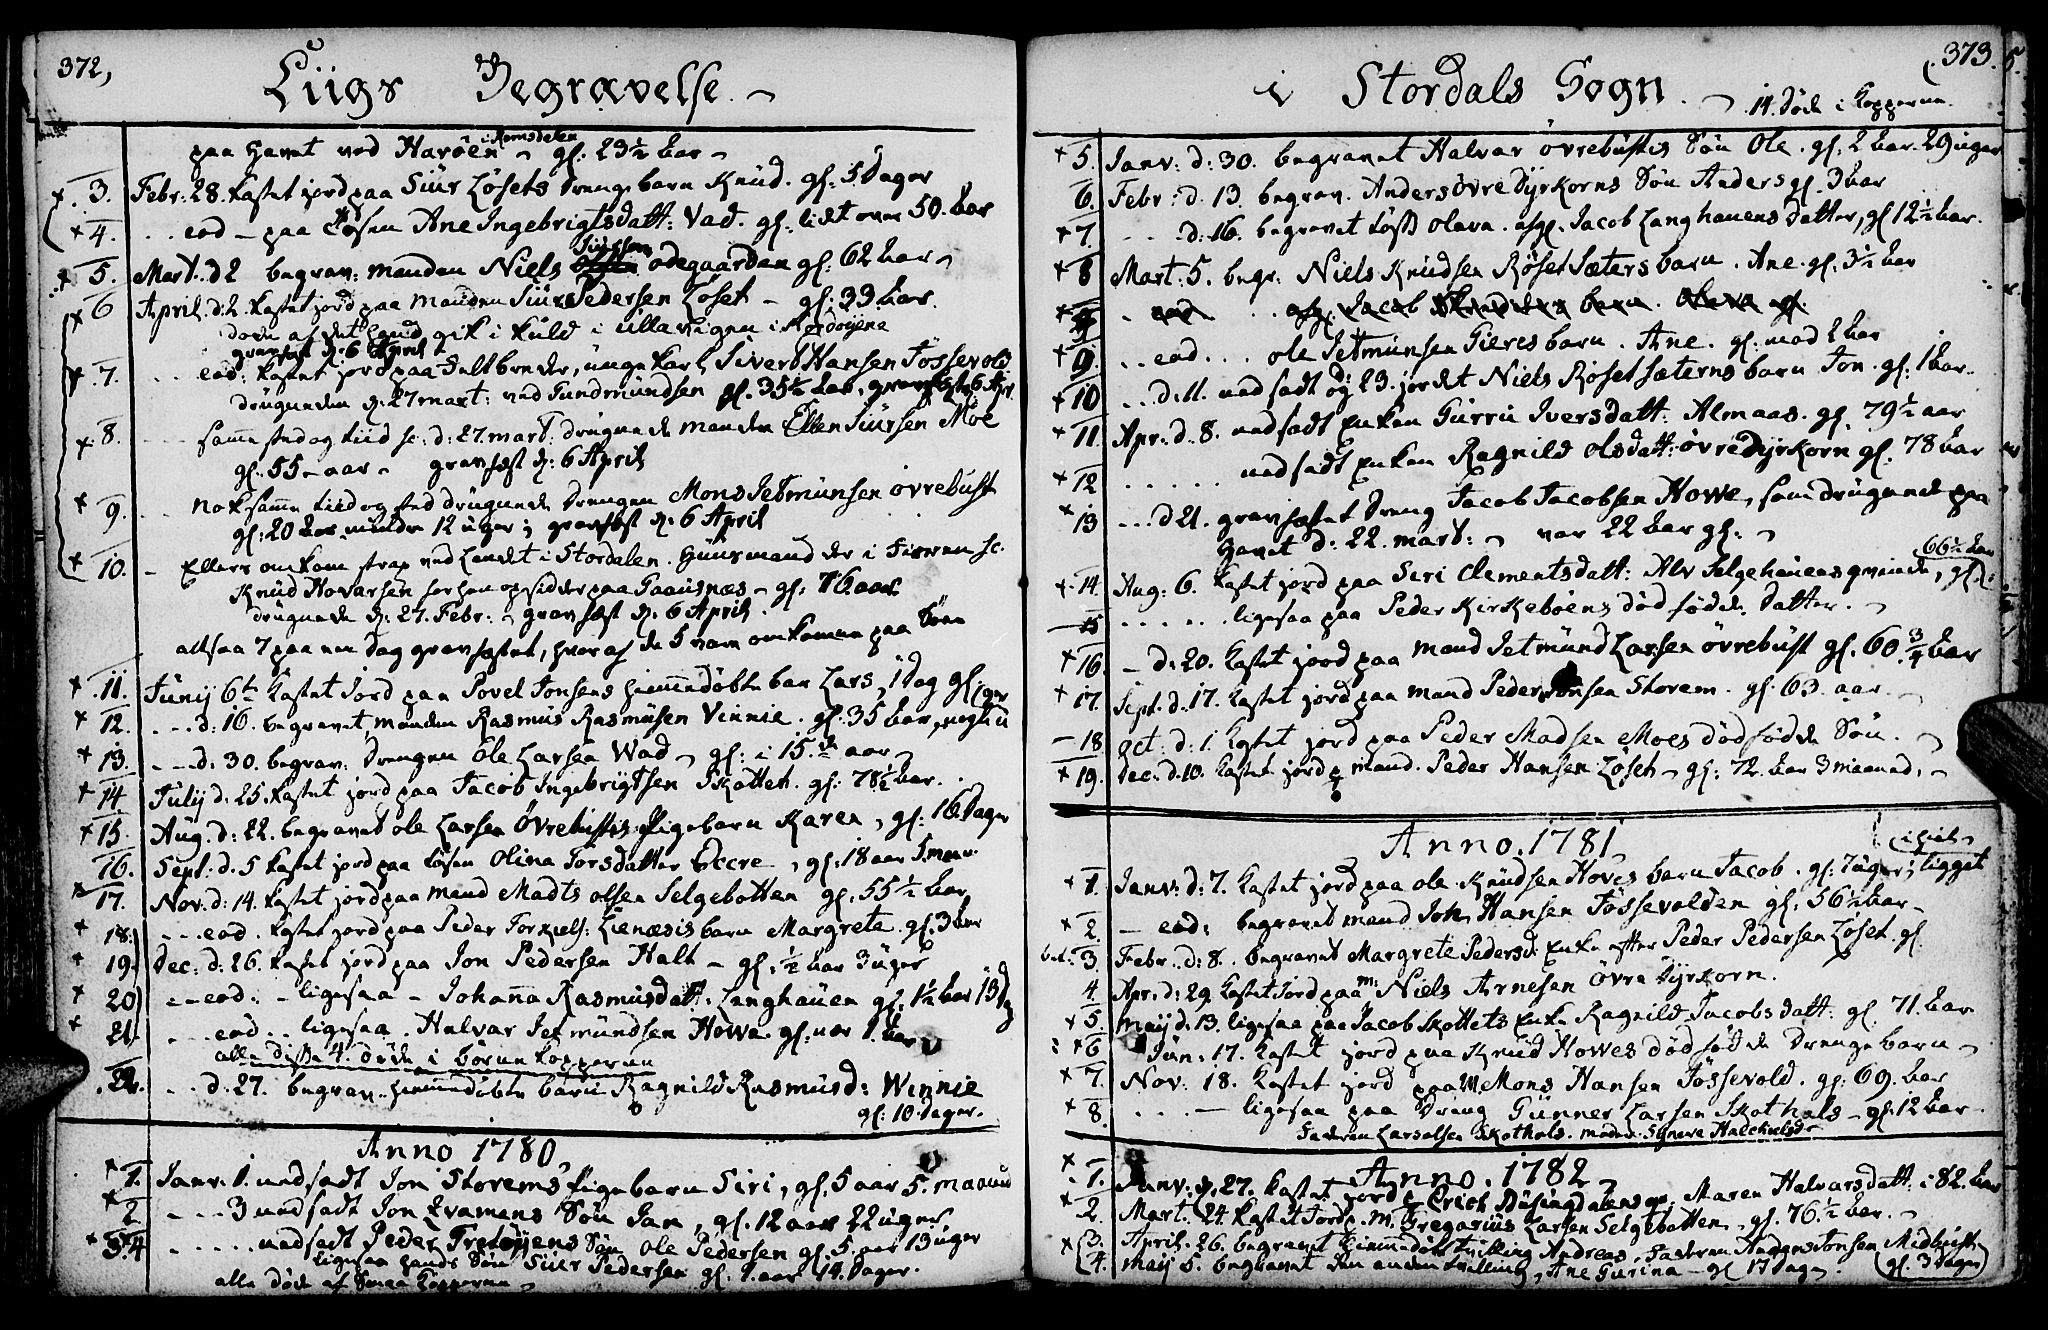 372,
Liigs Begravelse.
paa Havet ved Harøen i Romsdalen gl: 23½ aar
3. Febr: 28. kastet jord paa Siur Løsets Drengebarn Knud. gl: 5 Dager
4. .. eod - paa Løsen Ane Ingebrigtsdatt: Vad. gl: lidt over 50. aar
5. Mart. d 2 begrav: manden Niels Siursen ødegaarden gl: 62 aar
6 April. d: 2. kastet jord paa manden Siur Pedersen Løset - gl: 39 aar.
gravfæst d: 6 April
7. ... eod: kastet jord paa unge karl Sivert Hansen Fossevold
druknede d: 27 mart: ved Gundmundsen gl. 35½ aar, gravfæst d: 6 Apr.
8. samme sted og tiid sc: d: 27. mart: druknede manden Ellen Siursen Moe
gl: 55 - aar - gravfæst d: 6 April
9. nok samme tiid og sted druknede Drengen Mons Jetmundsen øvrebust
gl: 20 aar mindre 12 uger; gravfæst d: 6 April
10. - Ellers omkom strax ved Landet i Stordalen. Huusmand
Knud Hovarsen paa Gaausnæs - gl: 76. aar
druknede d: 27. Febr: - gravfæst d: 6 April
altsaa 7 paa een Dag gravfæstet, hvor af de 5 vare omkomne paa Søen
11. Junij 6te kastet Jord paa Povel Jonsens hiemmedøbte barn Lars, 1 Dag gl:
12. ... d: 16. begravet manden Rasmus Rasmusen Vinnie. gl: 35 aar,
13. --- d: 30. begrav: Drengen Ole Larsen Wad - gl: i 15.de aar
14 Julij d: 25. kastet jord paa Jacob Ingebrigtsen Skotteh. gl: 78½ aar.
15. Aug: d: 22. begravet ole Larsen Øvrebustes Pigebarn Karen, gl: 16. Dager
16. Sept: d. 5 kastet jord paa Løsen Olina Torsdatter Occre, gl: 18 aar 5. maan:
17. Nov. d: 14. kastet jord paa mand Madts olsen Selgebotten gl: 55½ aar
18. ... eod. kastet jord paa Peder Torkiels: Lienæsis barn Margrete. gl: 3 aar
19. Dec: d: 26. kastet jord paa Jon Pedersen Halt - gl: ½ aar 3 uger
20 -- eod: - ligesaa - Johanna Rasmusdat: Langhauen gl: 1½ aar 13 D
21. ... eod.. ligesaa. Halvar Jetmundsen Howe gl: nær 1. aar
alle disse 4. døde i børnekopperne
22. ... d: 27. begrav. hiemmedøbte barn Ragnild Rasmusd: Winnie
gl: 10. dager.
Anno 1780
1. Janv: 1. nedsadt Jon Storems Pigebarn Siri, gl: 5 aar 5. maaned
2 ... 3 nedsadt Jon Kvamens Søn Jan, gl: 12 aar 22 uger
3. ..... nedsadt Peder Tretøyens Søn Ole Pedersen gl: 5 aar 13 uger
4 ligesaa hands Søn Siur Pedersen gl: 1. aar 14. Dager.
alle døde af Smaa Kopperne
373.
i Stordals Sogn.
14. døde i Kopperne.
5. Janv: d: 30. begravet Halvar øvrebustis Søn Ole. gl: 2 aar. 29 uger
6. Febr: d. 13. begrav. Anders Øvre dyrkorns Søn Anders gl: 3 aar
7 ... d: 16. begravet Løsß Olava. afg: Jacob Langhauens datter, gl: 12½ aar.
8 Mart: 5. begr. Niels Knudsen Røset Sæters barn. Ane. gl: 3½ aar
9. .. eod... ole Jetmundsen Gieres barn. Ane. gl: med 2 aar
10 ... d: 11. nedsadt og 23. jordet Niels Røset Sæterns barn Jon. gl: 1 aar.
11. Apr: d. 8. nedsadt Enken Gurru Iversdatt: Almaas. gl: 79½ aar
12 ..... nedsadt Enken Ragnild Olsdatt: øvre Dyrkorn gl: 78 aar
13 ... d 21. gravfæstet Dreng Jacob Jacobsen Howe, som druknede paa
Havet d: 22. mart: - var 22 aar gl: -
14. Aug: 6. kastet jord paa Seri Clementsdatt: Alv Selgehauens qvinde, gl: 66½ aar
15 ..... ligesaa paa Peder Kirkebøens dødfødde Datter.
16. - d: 20. kastet jord paa mand Jetmund Larsen øvrebust gl: 60 ¾ aar
17. Sept: d. 17. kastet jord paa mand Peder Jonsen Storem. gl: 63. aar
18 Oct: d: 1. kastet jord paa Peder Madsen Moes dødfødde Søn.
19. Dec: d. 10. kastet jord p mand Peder Hansen Løset - gl: 72. aar 3 maaned.
Anno. 1781
1. Janv: d: 7. kastet jord paa ole Knudsen Hoves barn Jacob. gl: 7 uger; ligget
2. - eod: begravet mand Joh. Hansen Fossevolden gl: 56½ aar
3. Febr: d: 8. begravet Margrete Pedersd: Enke efter Peder Pedersen Løset. gl:
4. Apr: d: 29. kastet Jord paa m. Niels Arnesen Øvre Dyrkorn.
5 Maij d: 13. ligesaa paa Jacob Skottets Enke Ragnild Jacobsdatt: gl: 71. aar
6 Jun: 17. kastet jord paa Knud Howes dødfødde Drengebarn
7. Nov: 18. kastet jord paa M Mons Hansen Fossevold. gl: 69. aar
8. ... ligesaa paa Dreng Gunner Larsen Skothals - gl: 12 aar.
Faderen Lars olsen Skothols. moder Synneva
Anno. 1782
1. Janv: d. 27. kastet jord p Erich Døsingdalens qv: Maren Halvarsdatt: i 82. aar
2. Mart: 24. kastet Jord p. m. Gregarius Larsen Selgebotten. gl: 76.½ aar.
3. April. 26. begravet hiemmedøbt tvilling Andreas. Faderen Anders Jonsen Medbust
4. Maij 5. begravet den anden tvilling, Ane Gurina - gl 17 dage. gl: 3 Dager